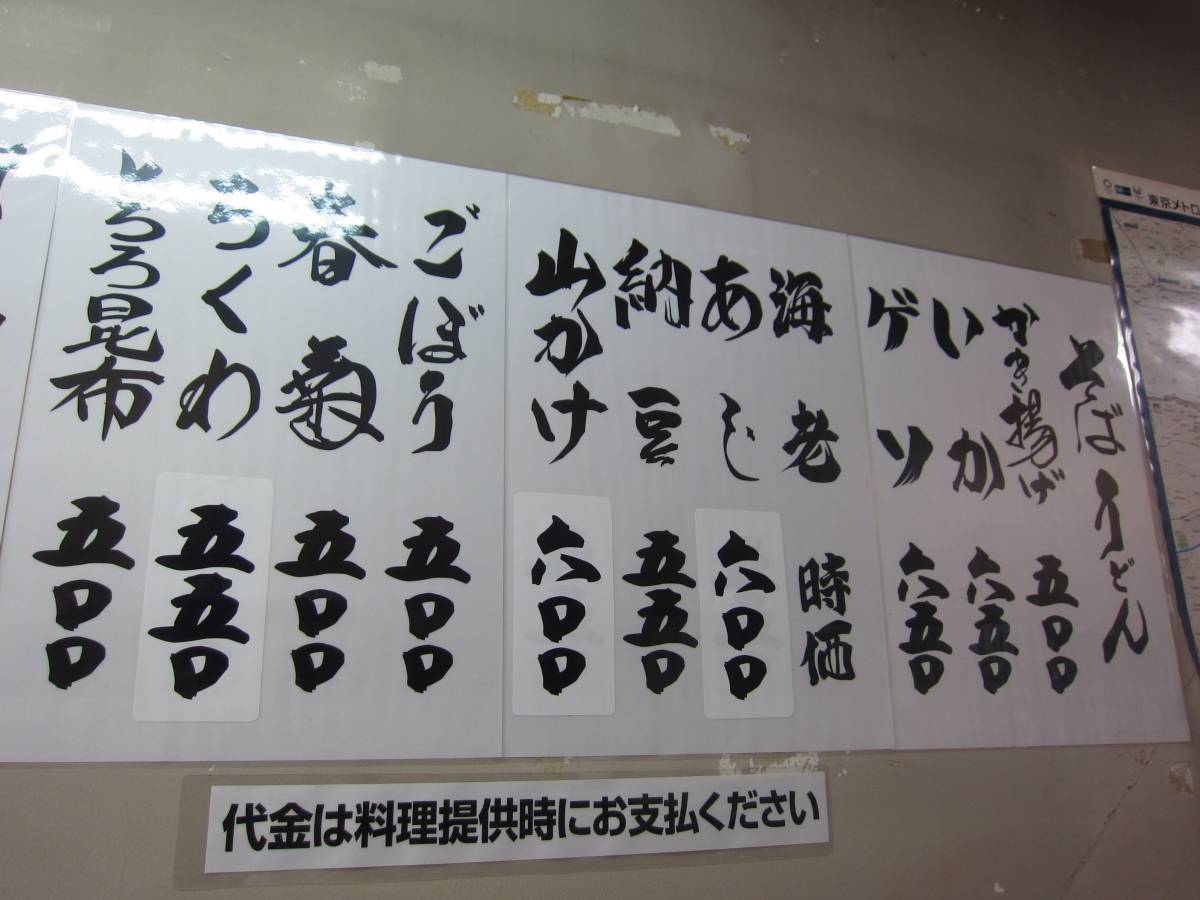 東京メトロ
そばうどん
かき揚げ 五〇〇
いか 六五〇
ゲソ 六五〇
海老 時価
あじ 六〇〇
納豆 五五〇
山かけ 六〇〇
ごぼう 五〇〇
春菊 五〇〇
ちくわ 五五〇
とろろ昆布 五〇〇
代金は料理提供時にお支払ください